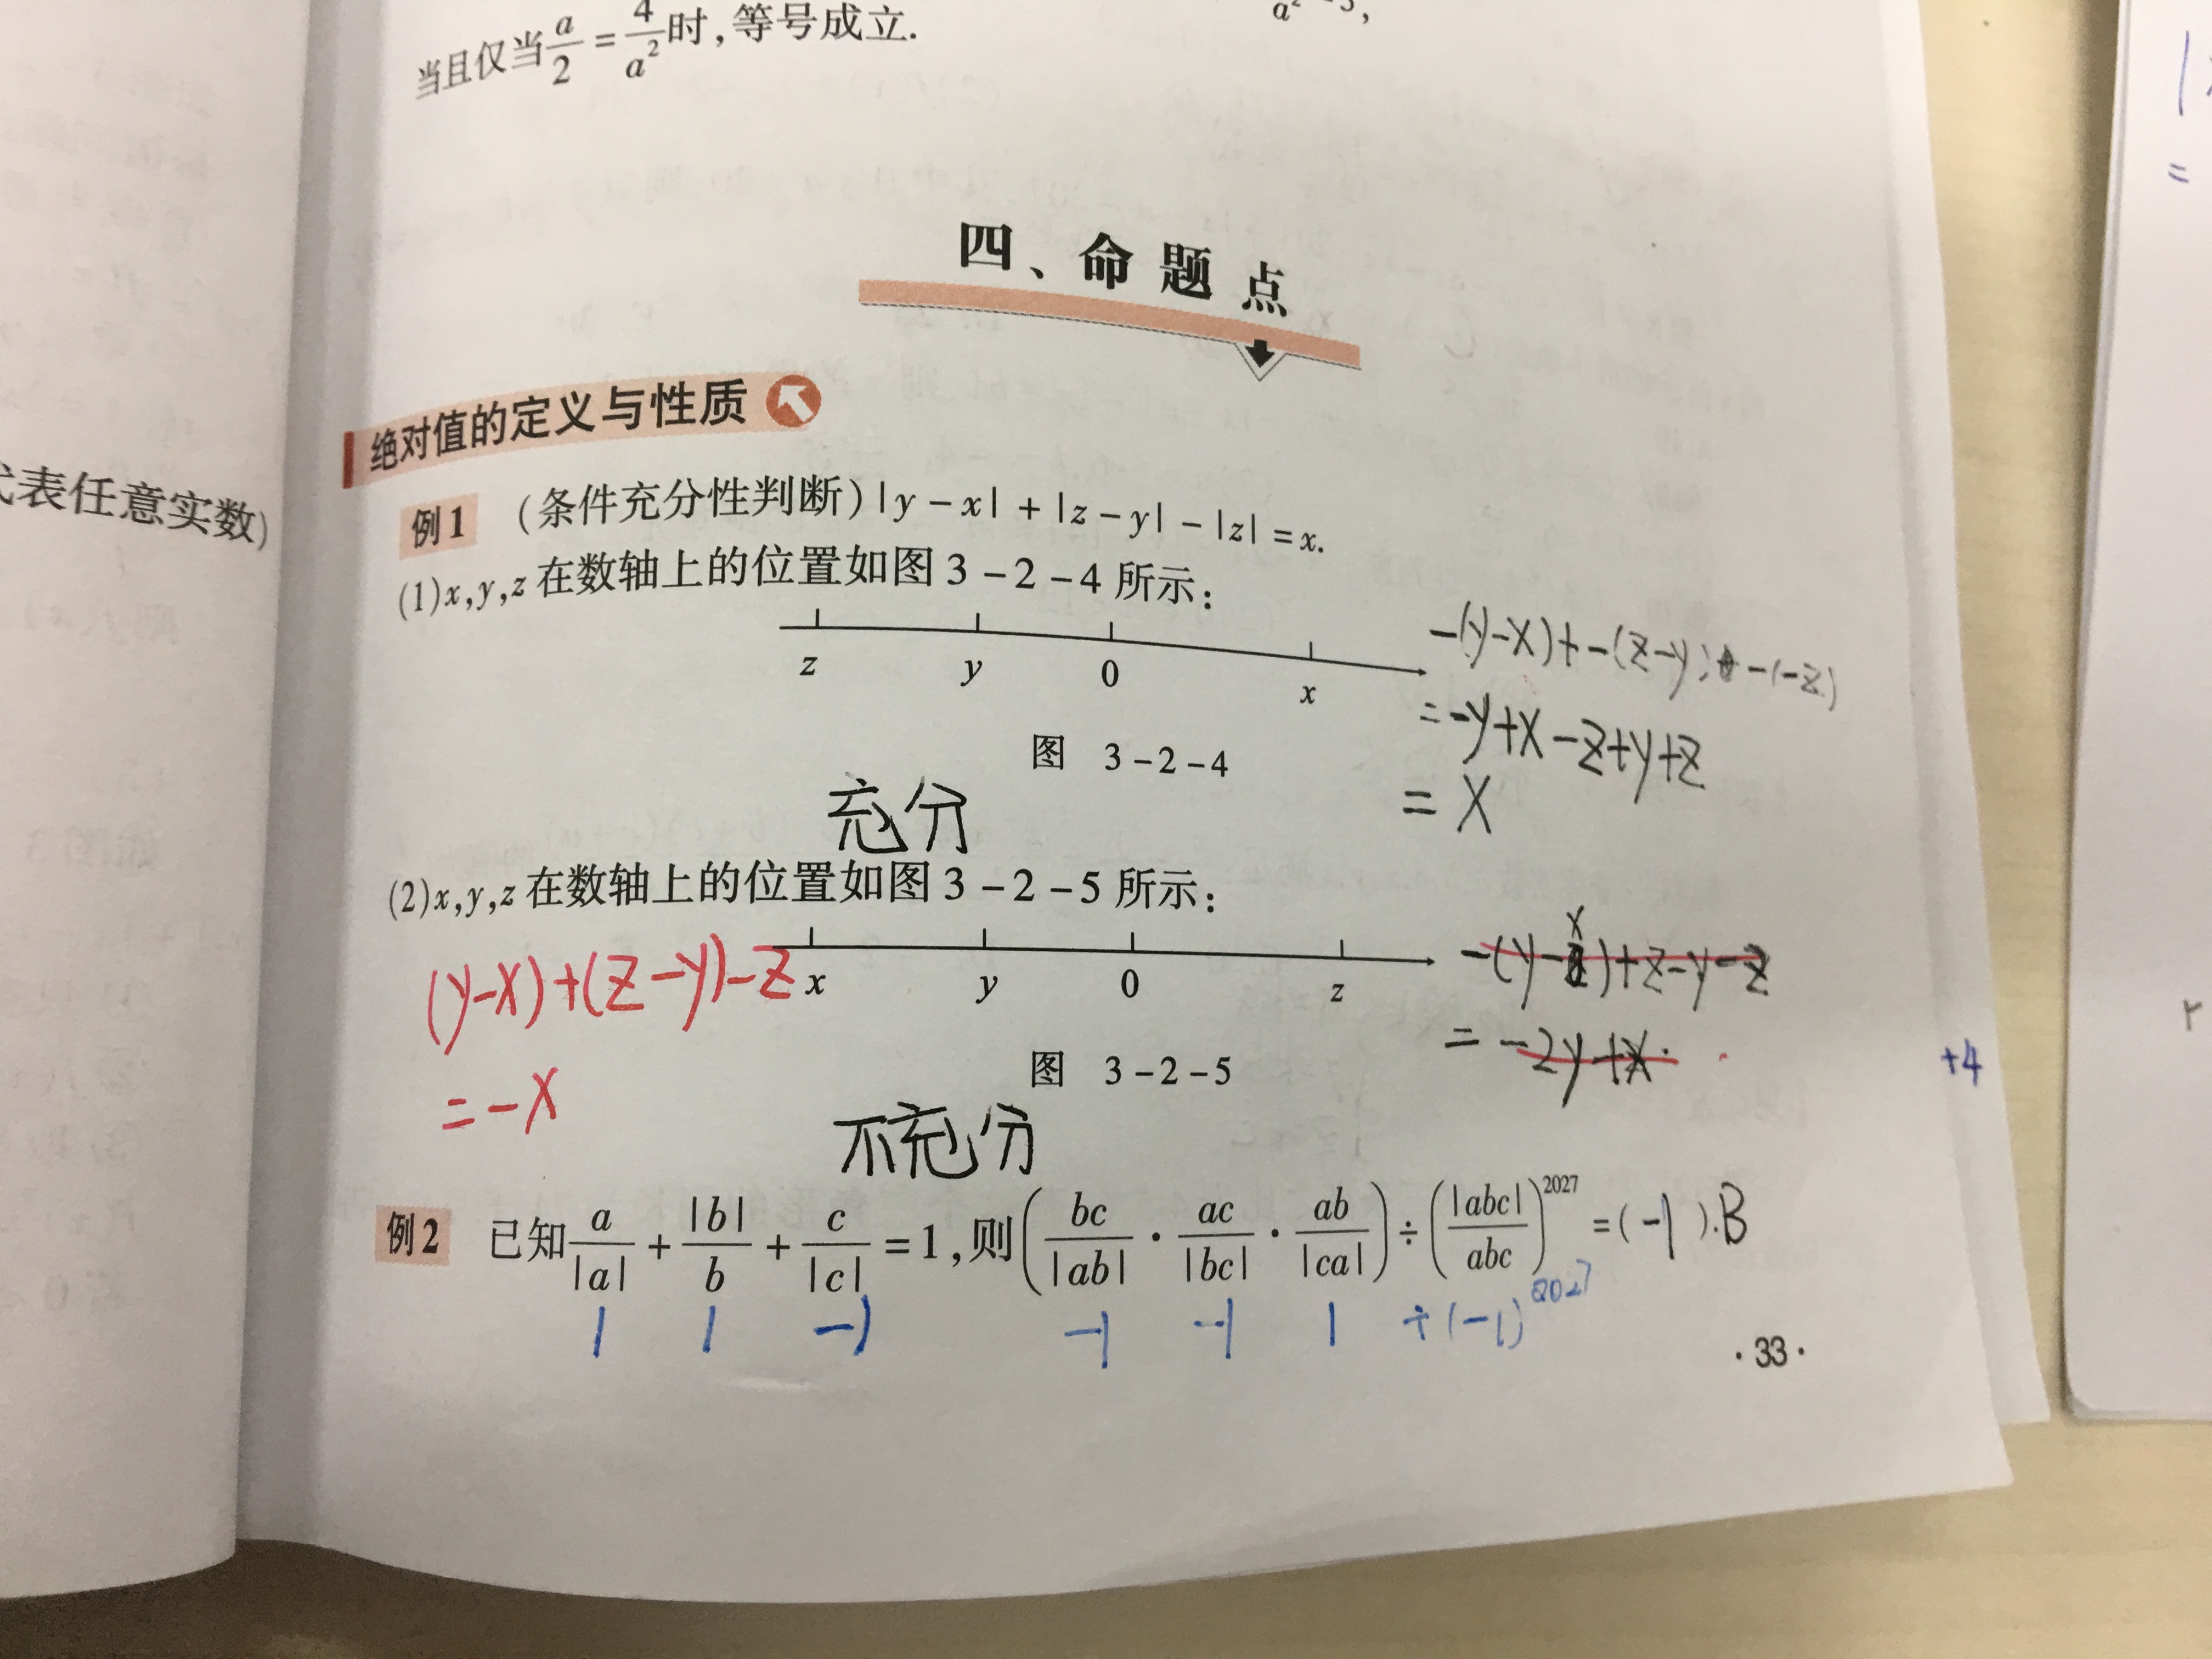 当且仅当a/2 = 4/a²时,等号成立.
四、命题点
绝对值的定义与性质
代表任意实数)
例1 (条件充分性判断)|y-x|+|z-y|-|z|=x.
(1)x,y,z在数轴上的位置如图3-2-4所示:
z y 0 x
-(y-x)+-(z-y)-(-z)
=-y+x-z+y+z
=x
图 3-2-4
充分
(2)x,y,z在数轴上的位置如图3-2-5所示:
x y 0 z
(y-x)+(z-y)-z
=-x
-(y-x)+z-y-z
=-2y+x
图 3-2-5
+4
不充分
例2 已知a/|a| + |b|/b + c/|c| = 1,则(bc/|ab| · ac/|bc| · ab/|ca|) ÷ (|abc|/abc)^2027 =(-1).B
1 1 -1 -1 -1 1 ÷(-1)^2027
·33·